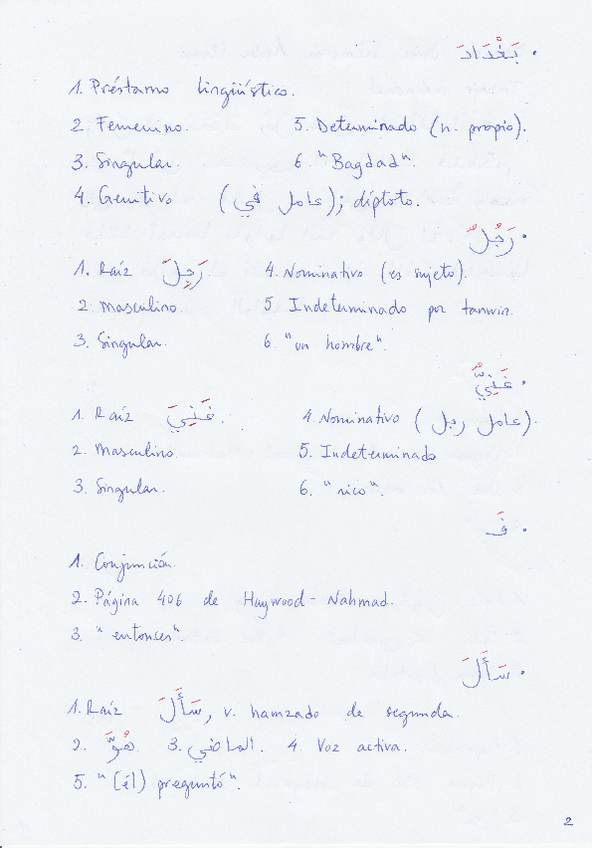 • بَغْدَادَ
1. Préstamo lingüístico.
2. Femenino. 5. Determinado (n. propio).
3. Singular. 6. "Bagdad".
4. Genitivo (عامل في); díptoto.
• رَجُلٌ
1. Raíz رَجِلَ. 4. Nominativo (es sujeto).
2. Masculino. 5. Indeterminado por tanwin.
3. Singular. 6. "un hombre".
• غَنِيٌّ
1. Raíz غَنِيَ. 4. Nominativo (عامل رجل).
2. Masculino. 5. Indeterminado
3. Singular. 6. "rico".
• فَ
1. Conjunción.
2. Página 406 de Haywood-Nahmad.
3. "entonces".
• سَأَلَ
1. Raíz سَأَلَ, v. hamzado de segunda.
2. هُوَّ. 3. الماضي. 4. Voz activa.
5. "(él) preguntó".
2